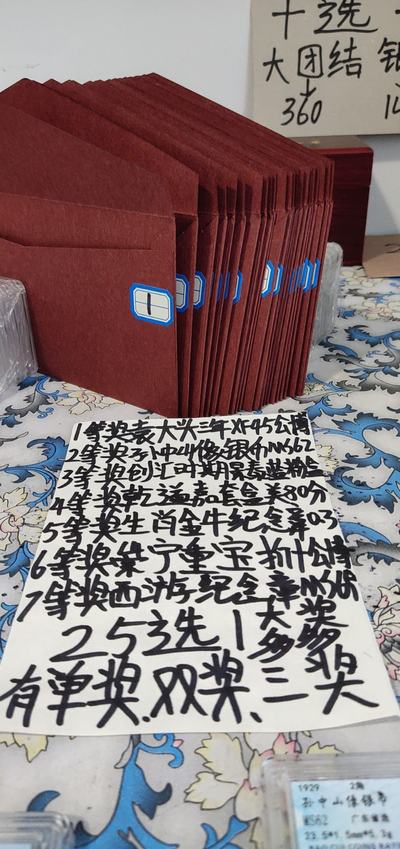 十选
大团结 银
360
1
1等奖袁大头三年XF45公博
2等奖孙中山像银币MS62
3等奖创汇时期景泰蓝粉盒
4等奖乾隆嘉套盒美80分
5等奖生肖金牛纪念章0.3
6等奖崇宁重宝折十公博
7等奖西游纪念章MS69
25选1大奖多多
有单奖.双奖、三奖
1929 2角
孙中山像银币
MS62 广东省造
23.5*1.5mm*5.3g